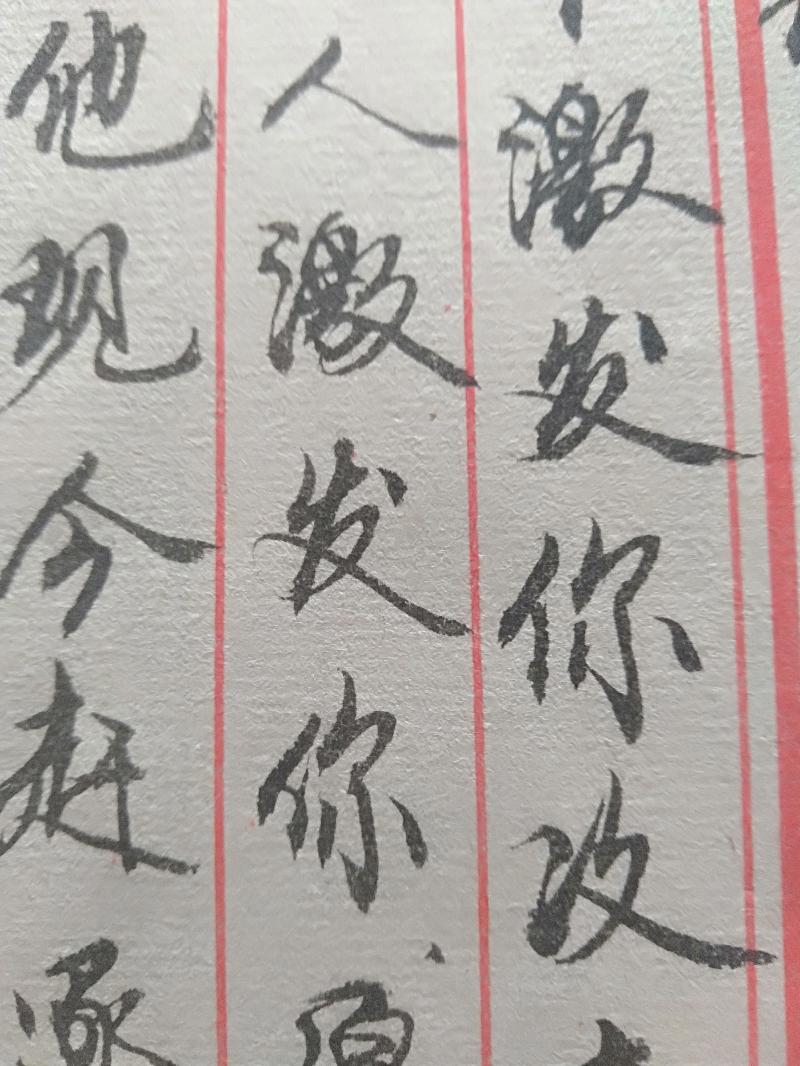 激发你改
人激发你原
他现今赶